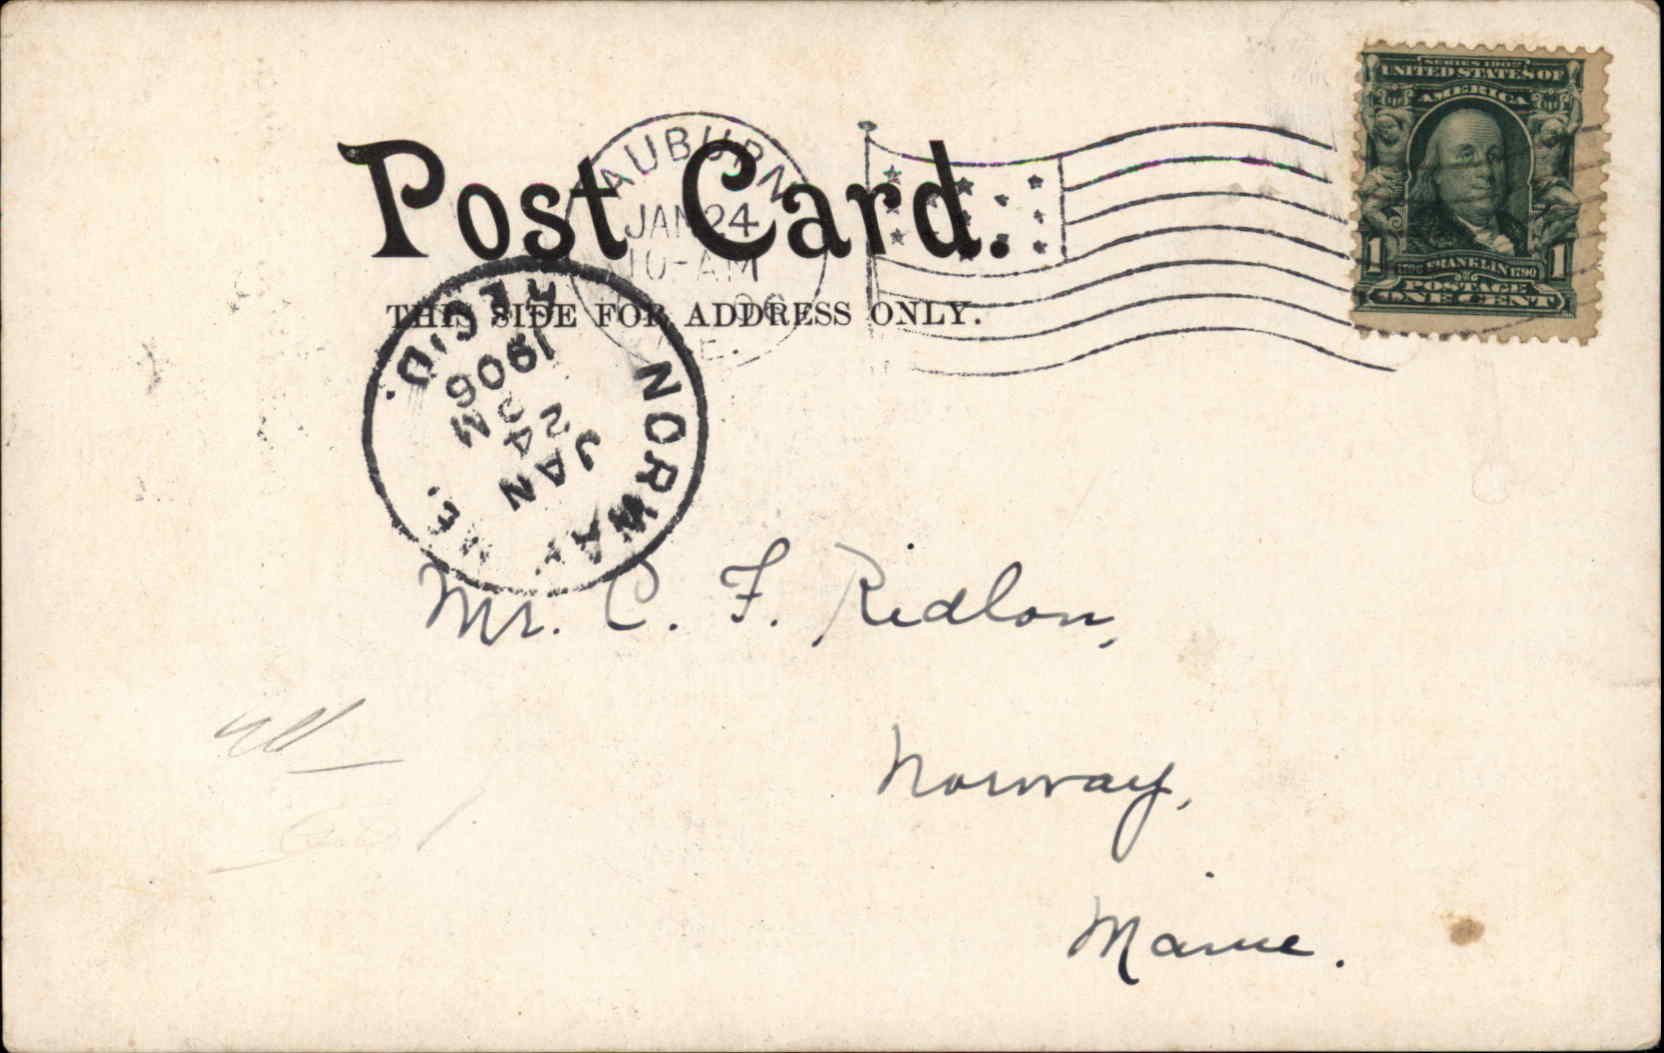 SERIES 1902
UNITED STATES OF
AMERICA
1 FRANKLIN 1790 1
POSTAGE
ONE CENT
AUBURN
JAN 24
10-AM
06
Post Card.
THIS SIDE FOR ADDRESS ONLY.
REC'D.
1906
M
JAN
24
NORWAY ME.
Mr. C. F. Ridlon,
Norway,
Maine.